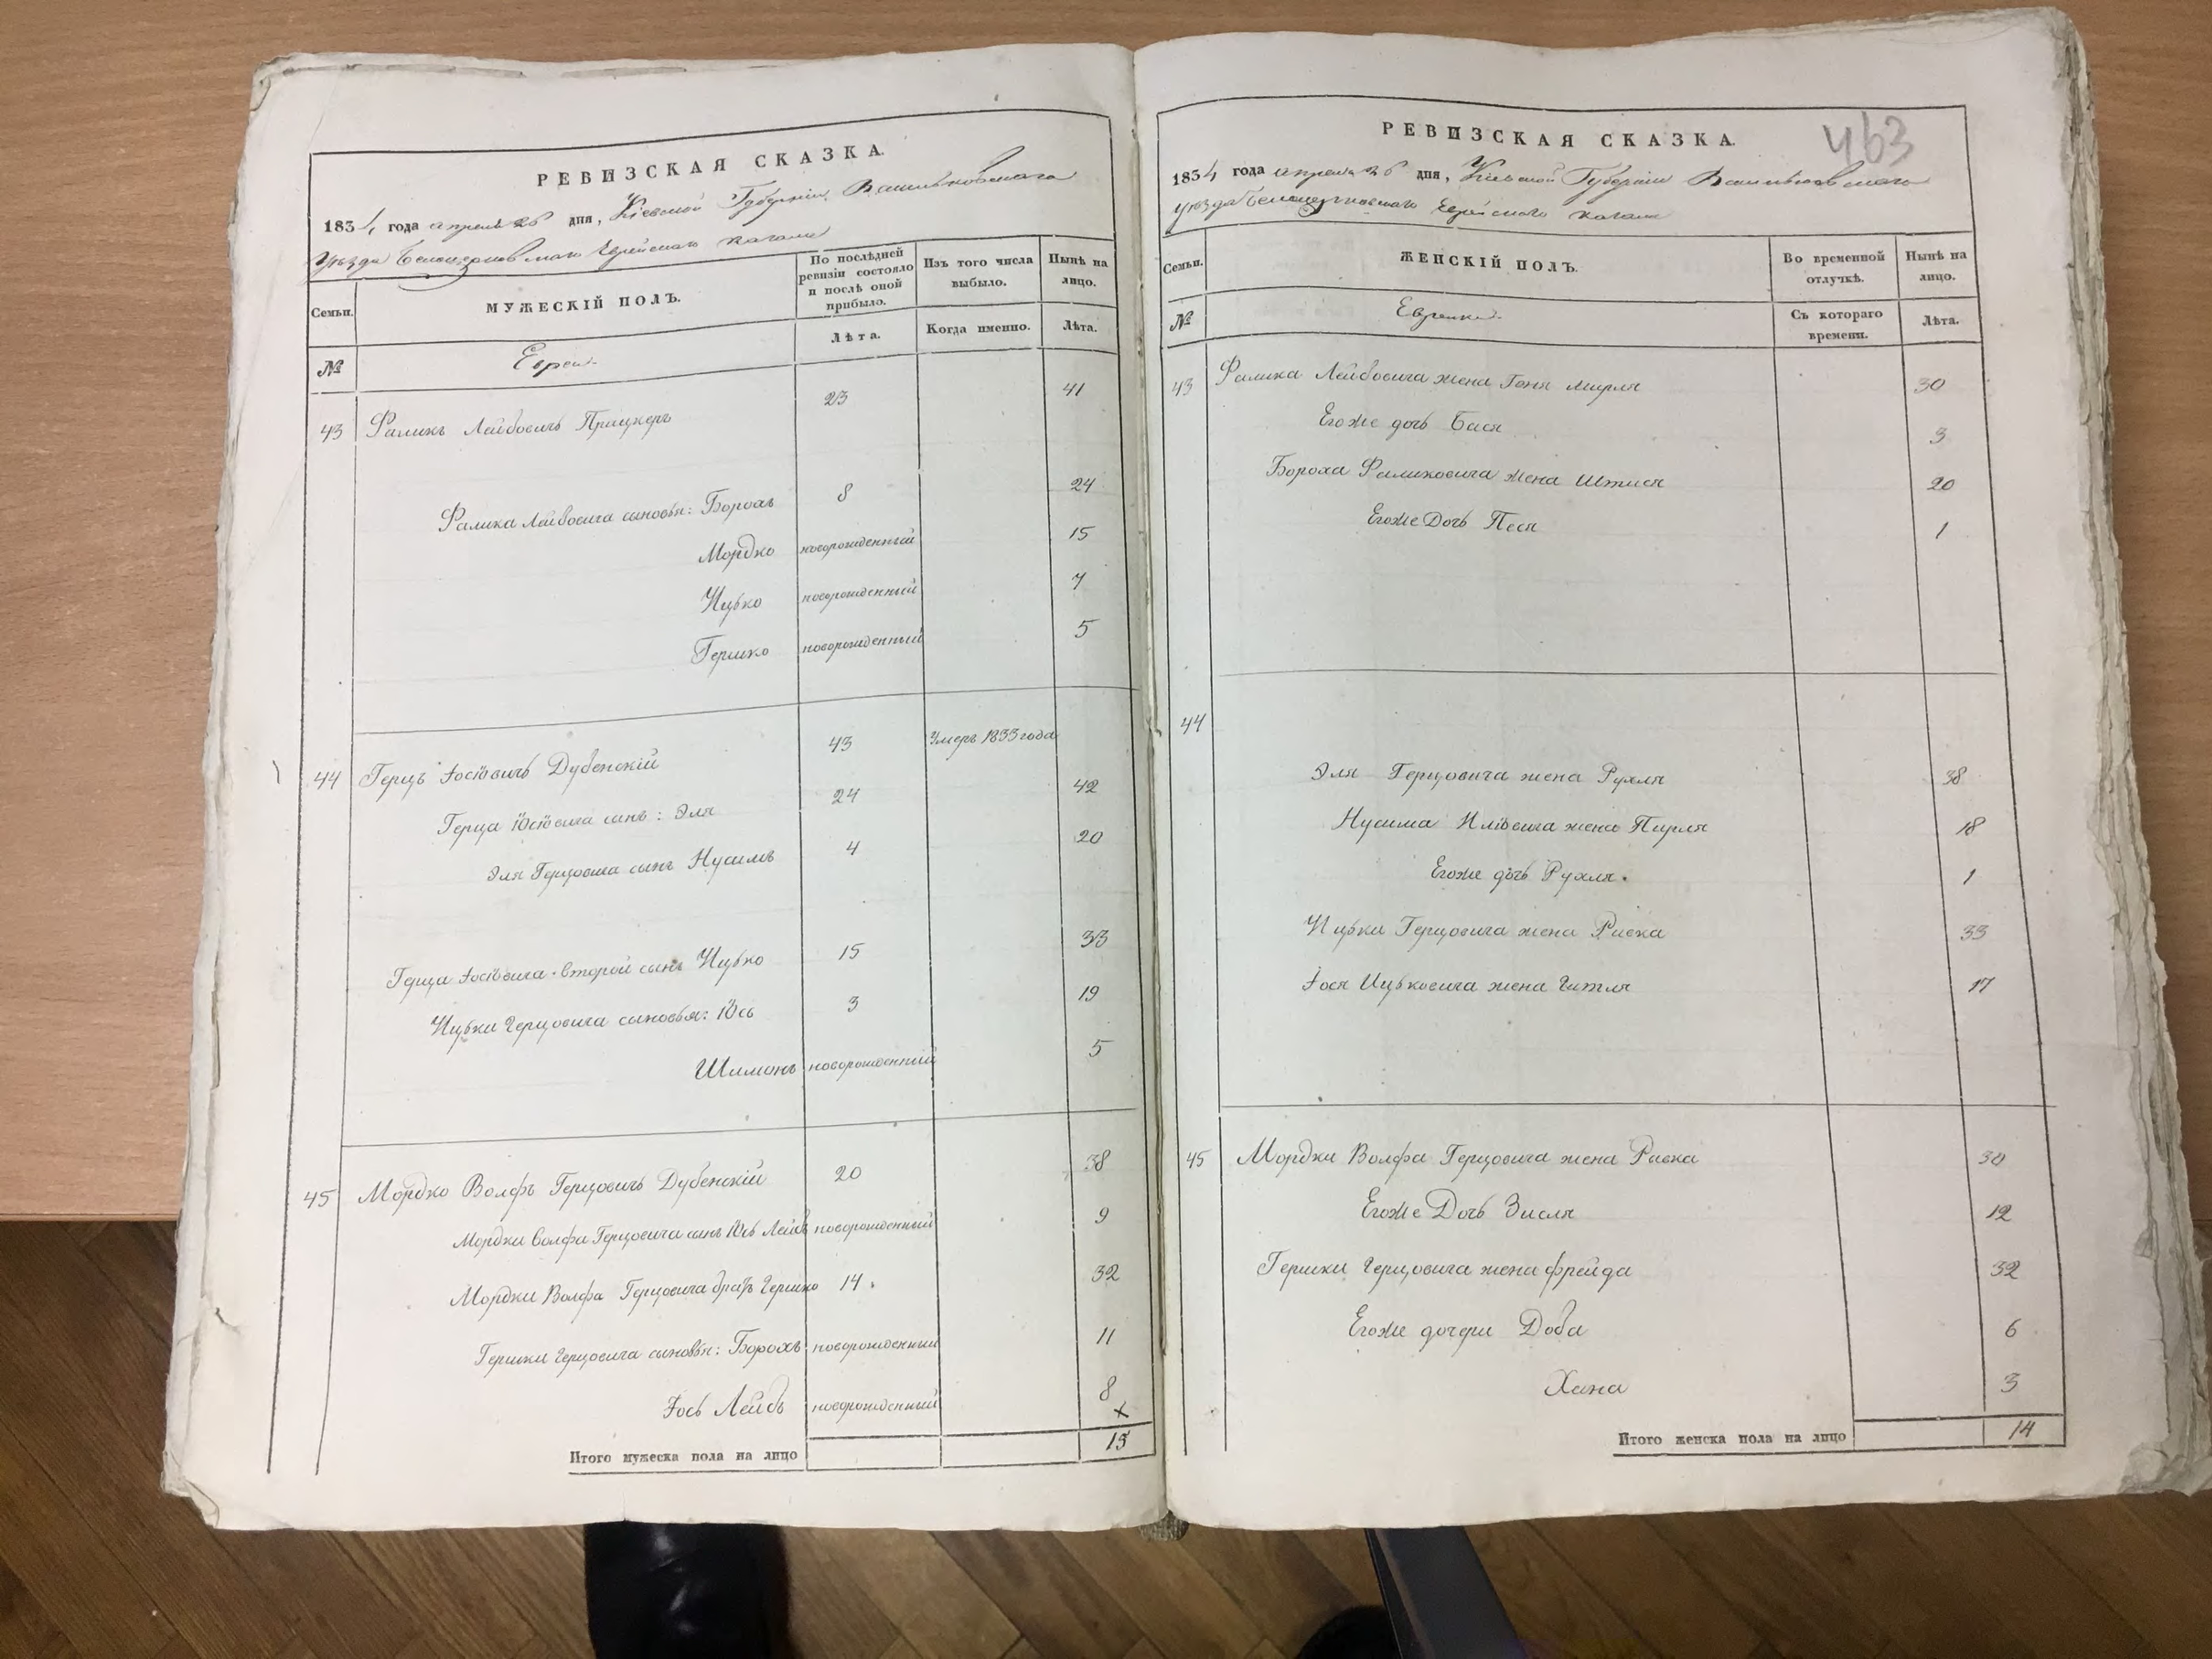 РЕВИЗСКАЯ СКАЗКА.
1834 года апреля 26 дня, Кіевской Губерніи Васильковскаго
уезда Белоцерковскаго Еврейскаго кагала
Семьи.
МУЖЕСКІЙ ПОЛЪ.
По послѣдней ревизіи состояло и послѣ оной прибыло.
Изъ того числа выбыло.
Нынѣ на лицо.
№
Евреи.
Лѣта.
Когда именно.
Лѣта.
43 Фаликъ Лейбовичъ Прицкеръ 23 41
Фалика Лейбовича сыновья: Борохъ 8 24
Мордко новорожденный 15
Ицько новорожденный 7
Гершко новорожденный 5
44 Герцъ Іосіовичъ Дубенскій 43 Умеръ 1833 года
Герца Іосіовича сынъ: Эля 24 42
Эля Герцовича сынъ Нусимъ 4 20
Герца Іосіовича второй сынъ Ицько 15 33
Ицьки Герцовича сыновья: Юсь 3 19
Шимонъ новорожденный 5
45 Мордко Волфъ Герцовичъ Дубенскій 20 38
Мордки Волфа Герцовича сынъ Юсь Лейбъ новорожденный 9
Мордки Волфа Герцовича братъ Гершко 14. 32
Гершки Герцовича сыновья: Борохъ новорожденный 11
Іось Лейбъ новорожденный 8
Итого мужеска пола на лицо 15
463
РЕВИЗСКАЯ СКАЗКА.
1834 года апреля 26 дня, Кіевской Губерніи Васильковскаго
уезда Белоцерковскаго Еврейскаго кагала
Семьи.
ЖЕНСКІЙ ПОЛЪ.
Во временной отлучкѣ.
Нынѣ на лицо.
№
Еврейки.
Съ котораго времени.
Лѣта.
43 Фалика Лейбовича жена Геня Мирля 30
Егоже дочь Бася 3
Бороха Фаликовича жена 20
Егоже Дочь Песя 1
44
Эля Герцовича жена Рухля 38
Нусима Иліовича жена Пирля 18
Егоже дочь Рухля. 1
Ицьки Герцовича жена Ривка 33
Іося Ицьковича жена Гитля 17
45 Мордки Волфа Герцовича жена Ривка 30
Егоже Дочь Зисля 12
Гершки Герцовича жена Фрейда 32
Егоже дочери Доба 6
Хана 3
Итого женска пола на лицо 14